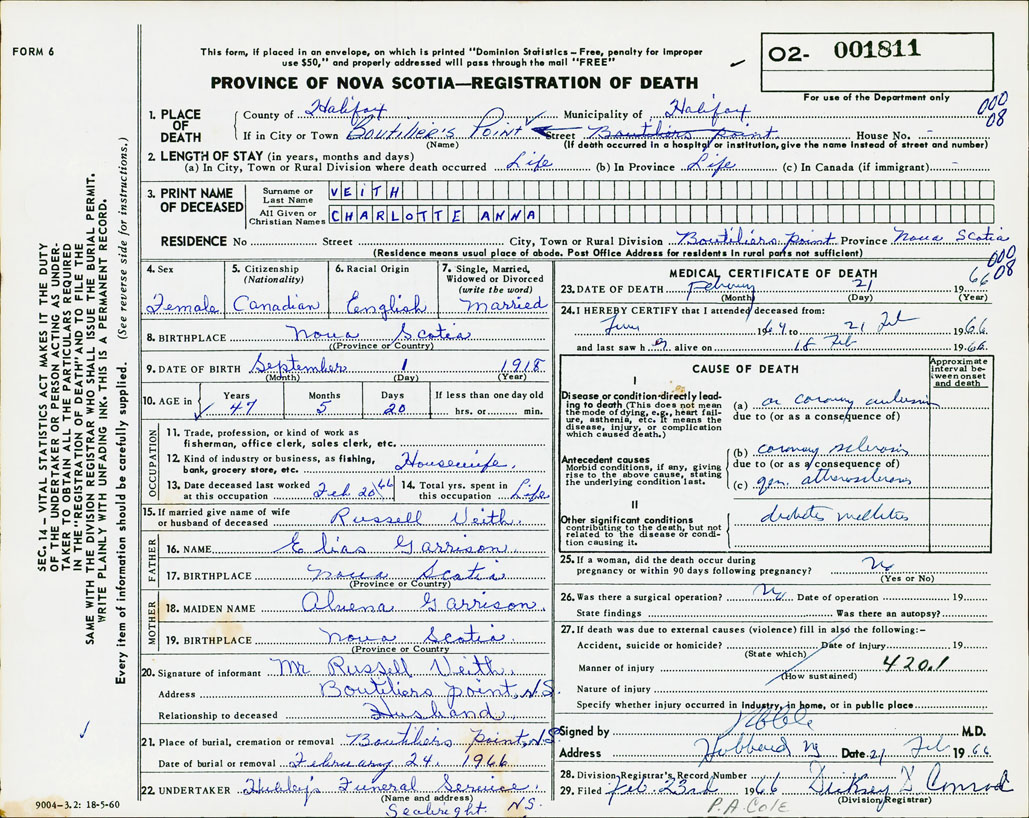 FORM 6
This form, if placed in an envelope, on which is printed "Dominion Statistics – Free, penalty for improper
use $50," and properly addressed will pass through the mail "FREE"
O2- 001811
For use of the Department only
PROVINCE OF NOVA SCOTIA—REGISTRATION OF DEATH
000
08
1. PLACE OF DEATH
County of Halifax Municipality of Halifax
If in City or Town Boutilier's Point Street Boutiliers point House No. -
(Name) (If death occurred in a hospital or institution, give the name instead of street and number)
2. LENGTH OF STAY (in years, months and days)
(a) In City, Town or Rural Division where death occurred Life (b) In Province Life (c) In Canada (if immigrant) -
3. PRINT NAME OF DECEASED
Surname or Last Name VEITH
All Given or Christian Names CHARLOTTE ANNA
RESIDENCE No Street City, Town or Rural Division Boutiliers point Province Nova Scotia
(Residence means usual place of abode. Post Office Address for residents in rural parts not sufficient)
000
08
4. Sex Female
5. Citizenship (Nationality) Canadian
6. Racial Origin English
7. Single, Married, Widowed or Divorced (write the word) Married
8. BIRTHPLACE Nova Scotia
(Province or Country)
9. DATE OF BIRTH September 1 1918
(Month) (Day) (Year)
10. AGE in Years 47 Months 5 Days 20 If less than one day old hrs. or min.
OCCUPATION
11. Trade, profession, or kind of work as
fisherman, office clerk, sales clerk, etc.
12. Kind of industry or business, as fishing,
bank, grocery store, etc. Housewife.
13. Date deceased last worked
at this occupation Feb. 20/66
14. Total yrs. spent in
this occupation Life
15. If married give name of wife
or husband of deceased Russell Veith
FATHER
16. NAME Elias Garrison
17. BIRTHPLACE Nova Scotia
(Province or Country)
MOTHER
18. MAIDEN NAME Alvena Garrison
19. BIRTHPLACE Nova Scotia
(Province or Country)
20. Signature of informant Mr Russell Veith
Address Boutiliers point, N.S.
Relationship to deceased Husband
21. Place of burial, cremation or removal Boutiliers point, N.S.
Date of burial or removal February 24, 1966
22. UNDERTAKER Hubley's Funeral Service.
(Name and address)
Seabright. N.S.
MEDICAL CERTIFICATE OF DEATH
23. DATE OF DEATH February 21 1966
(Month) (Day) (Year)
24. I HEREBY CERTIFY that I attended deceased from:
to 21 Feb 1966
and last saw h alive on 18 Feb 1966
CAUSE OF DEATH
Approximate interval between onset and death
I
Disease or condition directly lead-
ing to death (This does not mean
the mode of dying, e.g., heart fail-
ure, asthenia, etc. It means the
disease, injury, or complication
which caused death.)
(a) coronary
due to (or as a consequence of)
Antecedent causes
Morbid conditions, if any, giving
rise to the above cause, stating
the underlying condition last.
(b) coronary sclerosis
due to (or as a consequence of)
(c) gen. atherosclerosis
II
Other significant conditions
contributing to the death, but not
related to the disease or condi-
tion causing it.
diabetes mellitus
25. If a woman, did the death occur during
pregnancy or within 90 days following pregnancy? No
(Yes or No)
26. Was there a surgical operation? No Date of operation 19
State findings Was there an autopsy?
27. If death was due to external causes (violence) fill in also the following:–
Accident, suicide or homicide? Date of injury 19
(State which)
Manner of injury 420.1
(How sustained)
Nature of injury
Specify whether injury occurred in industry, in home, or in public place
Signed by M.D.
Address Hubbards NS Date 21 Feb 1966
28. Division Registrar's Record Number
29. Filed Feb. 23rd 1966 Conrad
(Division Registrar)
P.A. COLE
SEC. 14 – VITAL STATISTICS ACT MAKES IT THE DUTY
OF THE UNDERTAKER OR PERSON ACTING AS UNDER-
TAKER TO OBTAIN ALL THE PARTICULARS REQUIRED
IN THE "REGISTRATION OF DEATH" AND TO FILE THE
SAME WITH THE DIVISION REGISTRAR WHO SHALL ISSUE THE BURIAL PERMIT.
WRITE PLAINLY WITH UNFADING INK. THIS IS A PERMANENT RECORD.
Every item of information should be carefully supplied. (See reverse side for instructions.)
9004-3.2: 18-5-60